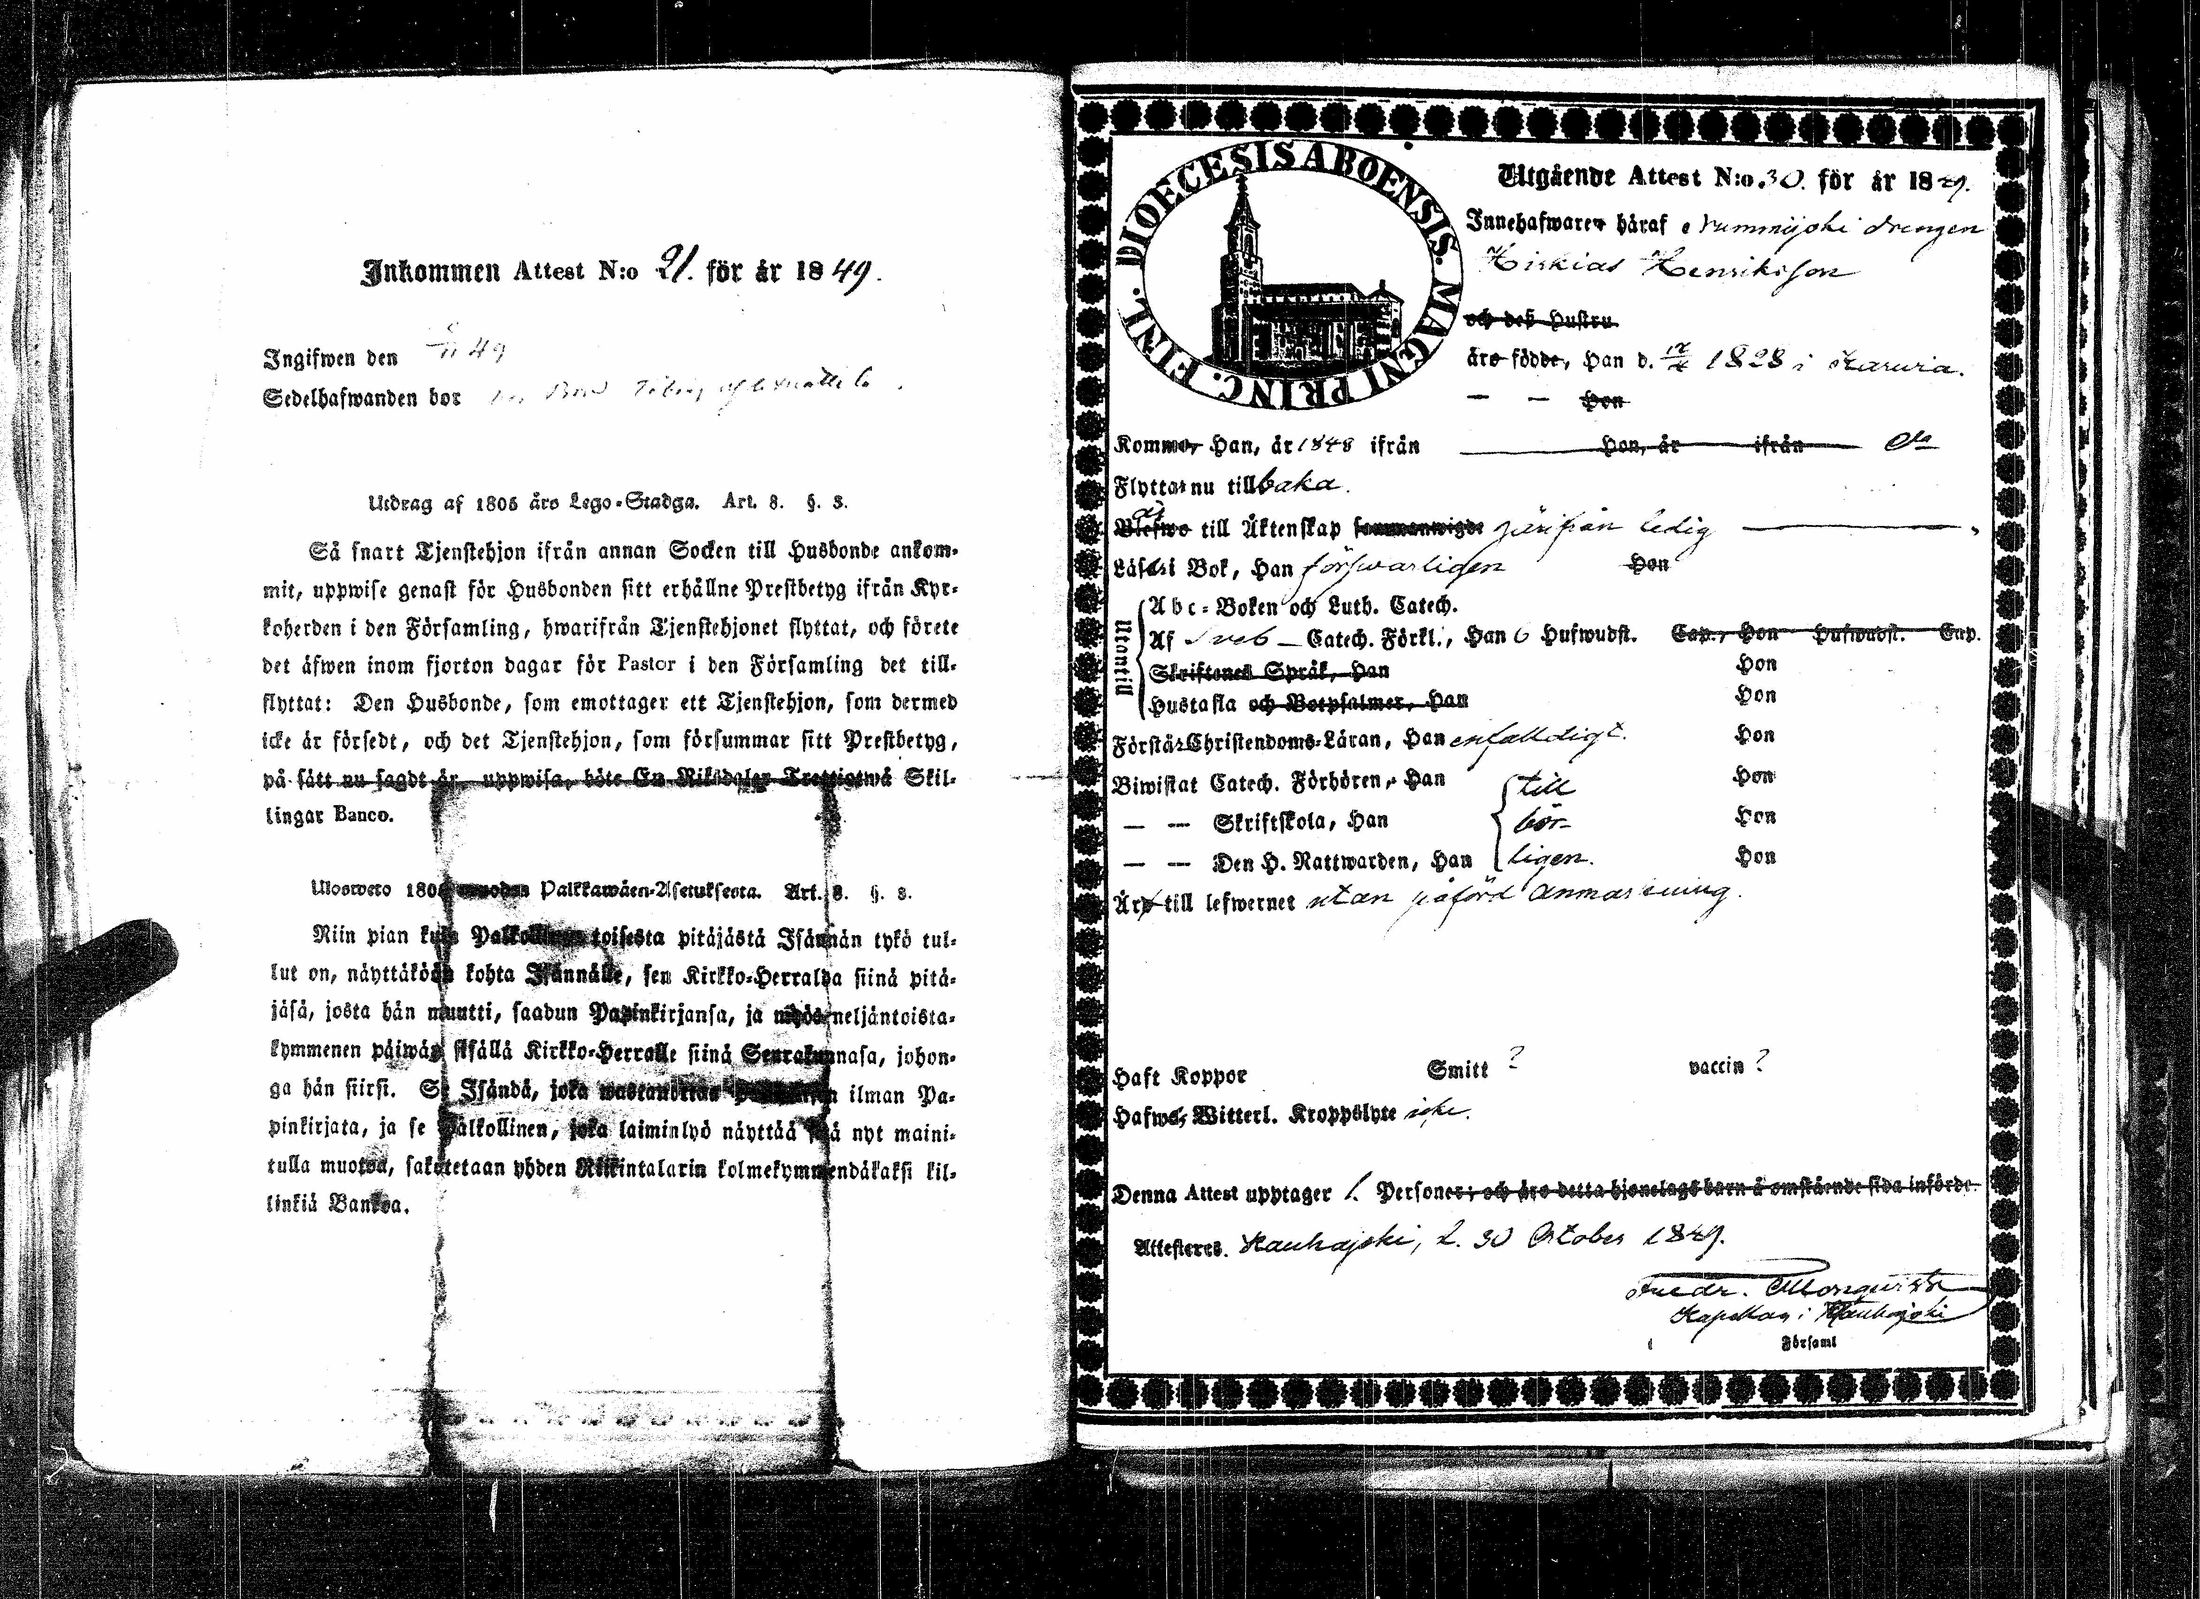 Inkommen Attest N:o 21. för år 1849.
Ingifwen den 49
Sedelhafwanden bor
Utdrag af 1805 års Lego-Stadga. Art. 8. §. 3.
Så snart Tjenstehjon ifrån annan Socken till Husbonde ankom-
mit, uppwise genast för Husbonden sitt erhållne Prestbetyg ifrån Kyr-
koherden i den Församling, hwarifrån Tjenstehjonet flyttat, och förete
det äfwen inom fjorton dagar för Pastor i den Församling det till-
flyttat: Den Husbonde, som emottager ett Tjenstehjon, som dermed
icke är försedt, och det Tjenstehjon, som försummar sitt Prestbetyg,
på sätt nu sagdt är, uppwisa, böte En Riksdaler Trettiotwå Skil-
lingar Banco.
Ulosweto 1805 wuoden Palkkawäen-Asetuksesta. Art. 8. §. 3.
Niin pian kuin Palkollinen toisesta pitäjästä Isännän tykö tul-
lut on, näyttäköön kohta Isännälle, sen Kirkko-Herralda siinä pitä-
jäsä, josta hän muutti, saadun Papinkirjansa, ja myös neljäntoista-
kymmenen päiwän sisällä Kirkko-Herralle siinä Seurakunnasa, johon-
ga hän siirsi. Se Isändä, joka wastanottaa ilman Pa-
pinkirjata, ja se Palkollinen, joka laiminlyö näyttää sitä nyt maini-
tulla muotoa, sakotetaan yhden Riikintalarin kolmekymmendäkaksi kil-
linkiä Bankoa.
DIOECESIS ABOENSIS. MAGNI PRINC. FINL.
Utgående Attest N:o 30. för år 1849.
Innehafwaren häraf Nummijoki drengen
Hiskias Henriksson
och deß Hustru
äro födde, Han d. 1828 i Karvia.
— — Hon
Kommo, Han, år 1848 ifrån Hon, år ifrån
Flyttar nu tillbaka.
Blefwo till Äktenskap sammanwigde härifrån ledig
Läser i Bok, Han förswarligen Hon
Utantill
Abc-Boken och Luth. Catech.
Af Sveb — Catech. Förkl., Han 6 Hufwudst. Cap., Hon Hufwudst. Cap.
Skriftenes Språk, Han Hon
Hustafla och Botpsalmer, Han Hon
Förstår Christendoms-Läran, Han enfalldigt. Hon
Biwistat Catech. Förhören, Han till Hon
— — Skriftskola, Han bör- Hon
— — Den H. Nattwarden, Han ligen. Hon
Äro till lefwernet utan påförd anmärkning.
Haft Koppor Smitt ? vaccin ?
Hafwa, Witterl. Kroppslyte icke.
Denna Attest upptager 1. Personer; och äro detta hjonelags barn å omstående sida införde.
Attesteres. Kauhajoki, d. 30 October 1849.
Fredr.
Kapellan i Kauhajoki
Församl